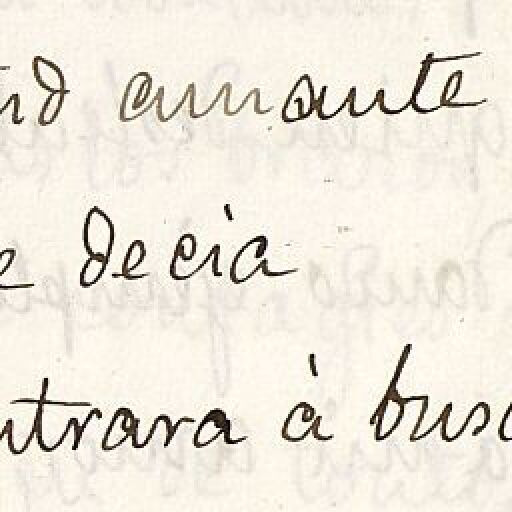 amante
e decia
ntrara à busc